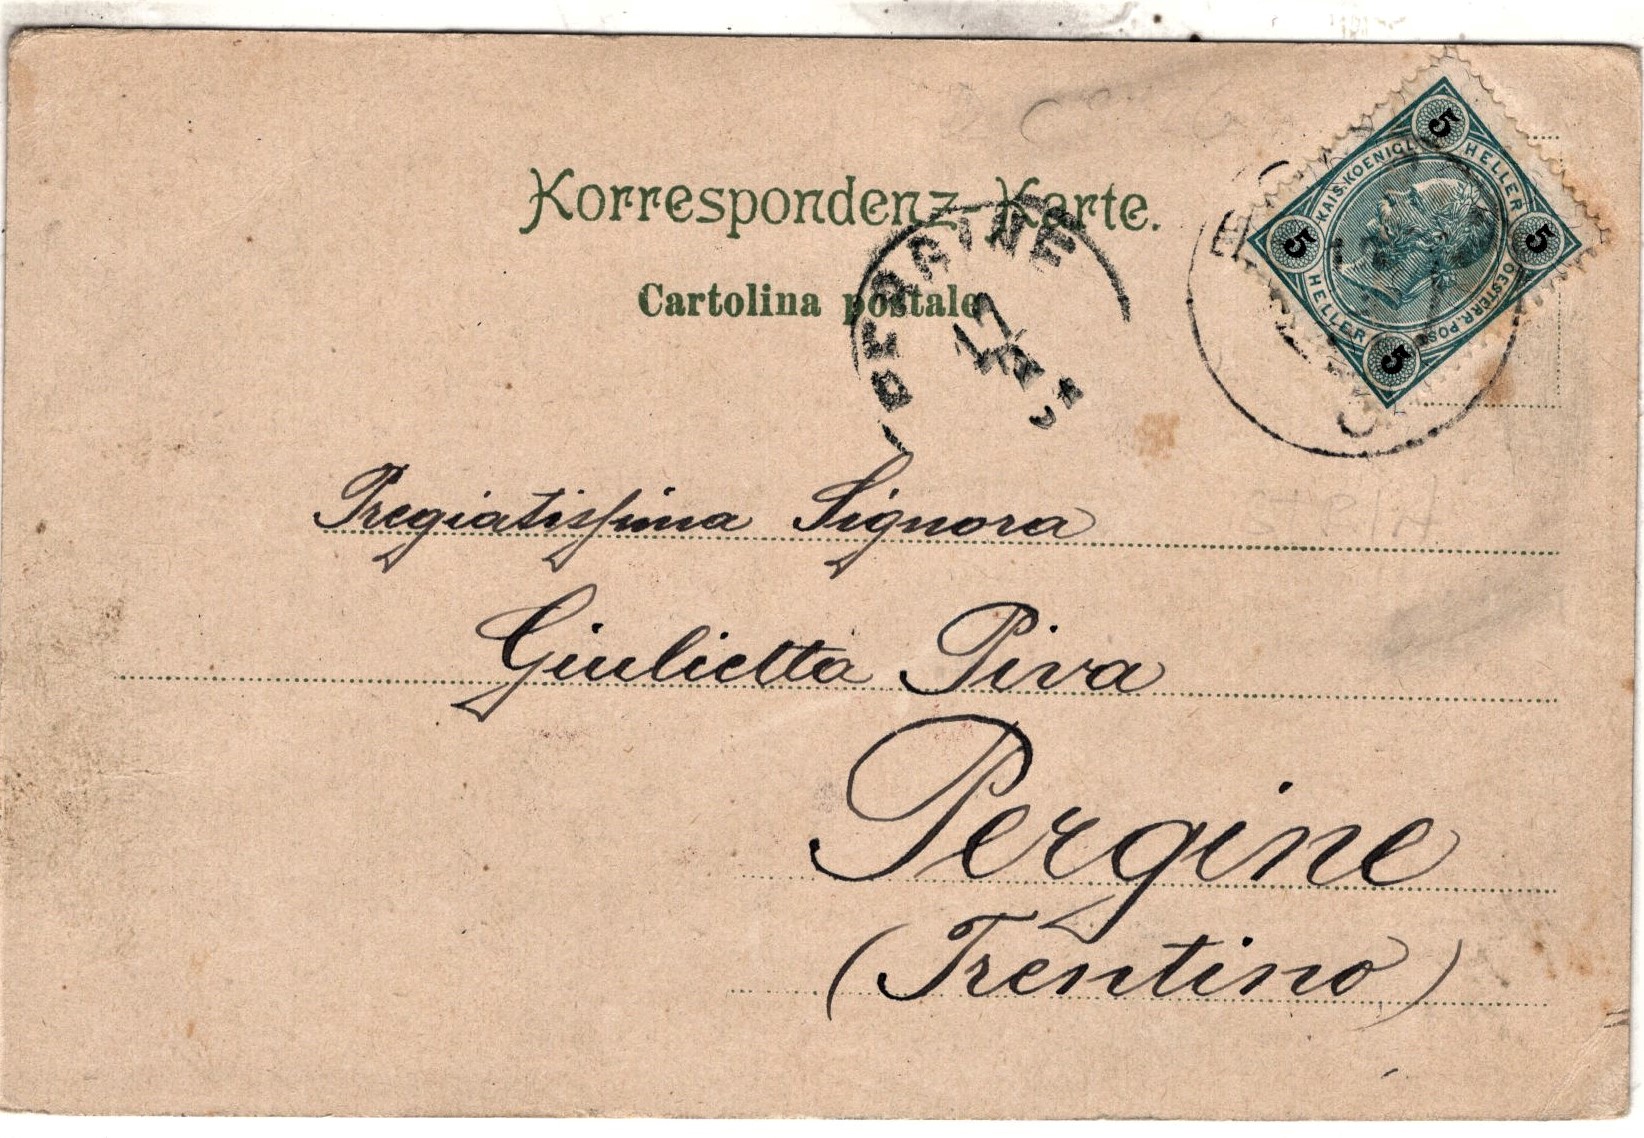 Korrespondenz-Karte.
Cartolina postale
5
HELLER
5
KAIS. KOENIGL.
5
HELLER
5
OESTERR. POST
PERGINE
17
Pregiatissima Signora
Giulietta Piva
Pergine
(Trentino)